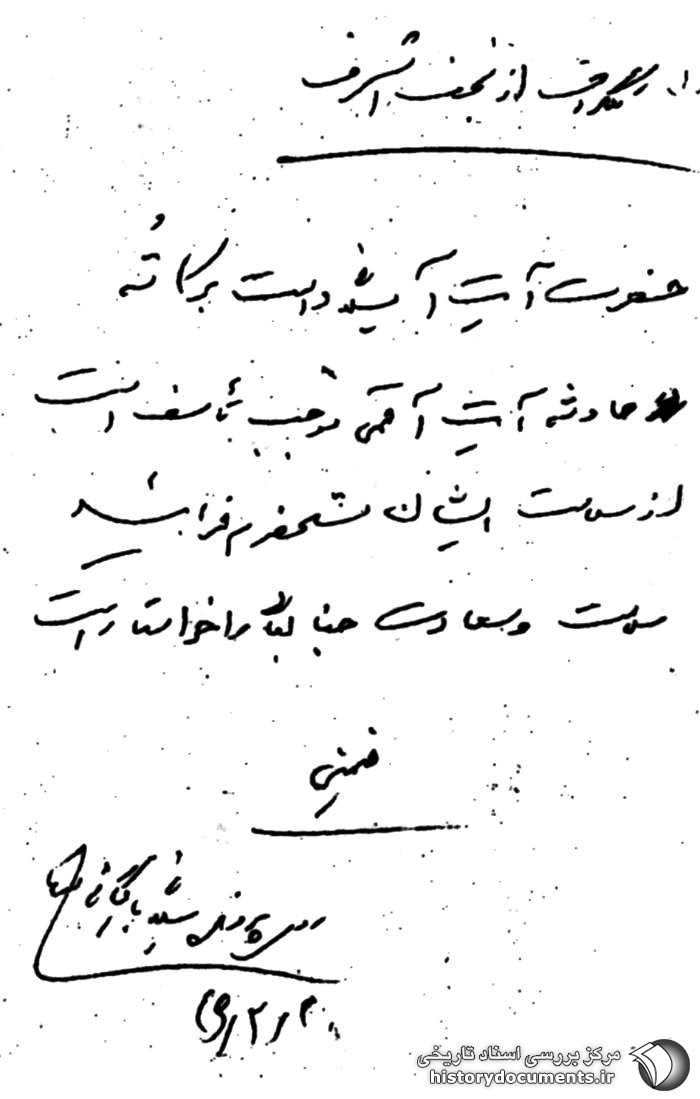 تلگراف از نجف اشرف
حضرت آیت آ دامت برکاته
حادثه آیت آ قمی موجب تأسف است
از سلامت ایشان مستحضرم فرمائید
سلامت و سعادت جنابعالی را خواستار است
خمینی
پرونده بایگانی شود
مرکز بررسی اسناد تاریخی
historydocuments.ir